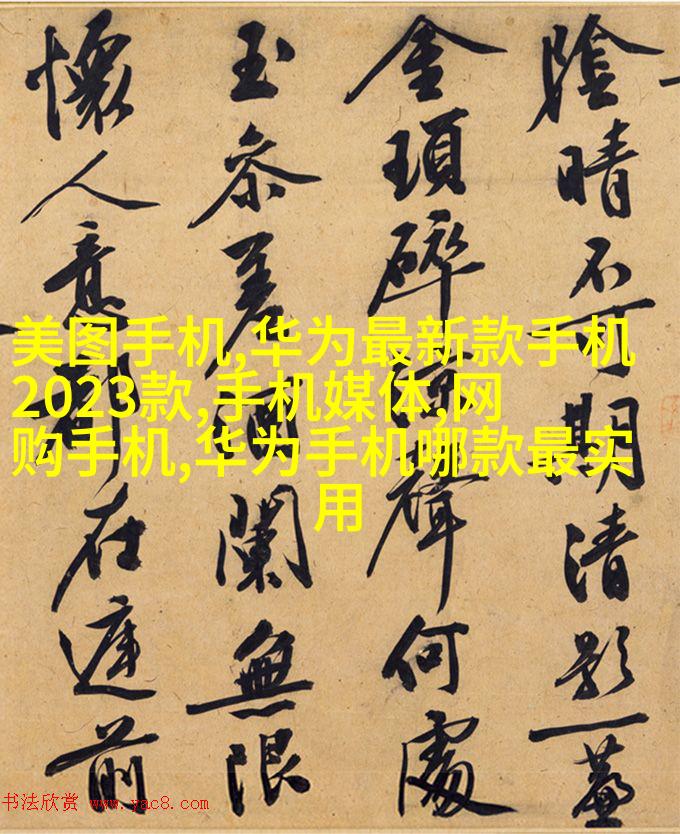 陰晴不可期清影一
金瑣碎聲何處
玉參差闌無限
懷人意在前
美图手机,华为最新款手机
2023款,手机媒体,网
购手机,华为手机哪款最实
用
书法欣赏 www.yac8.com